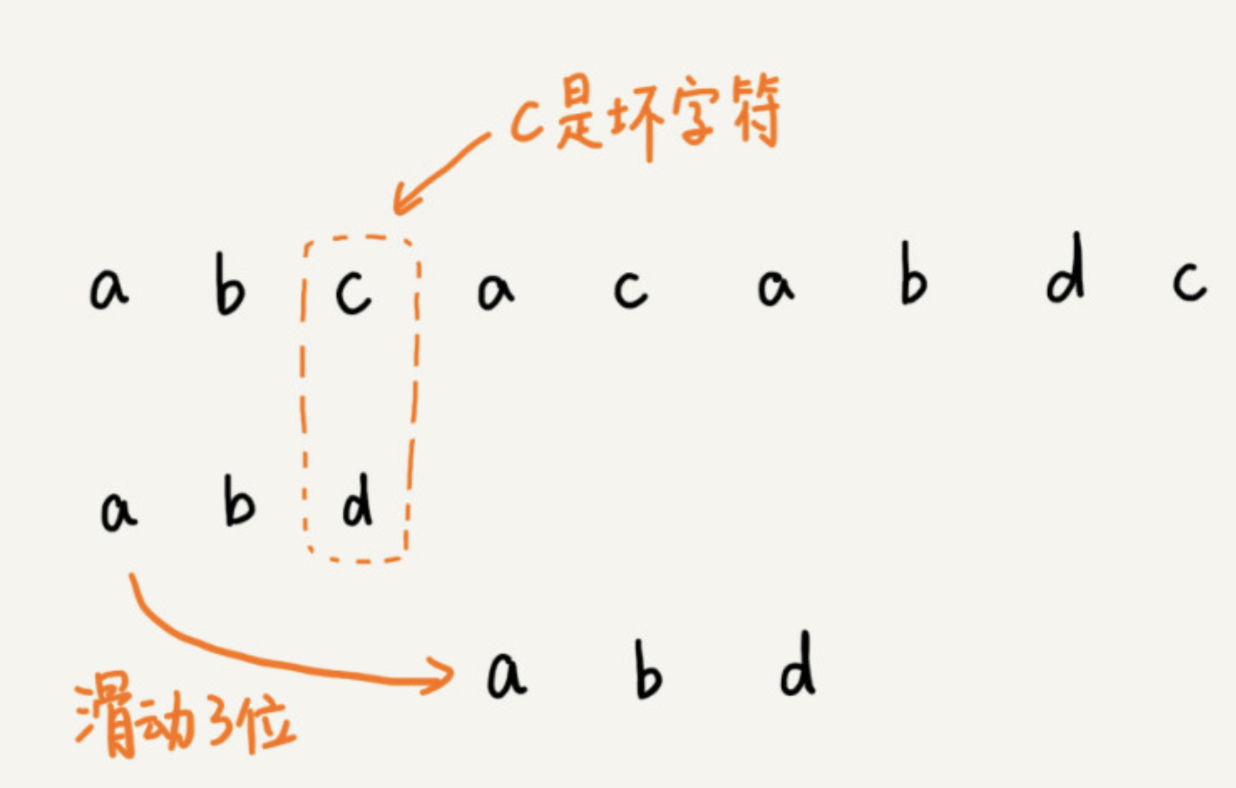 c是坏字符
a b c a c a b d c
a b d
a b d
滑动3位